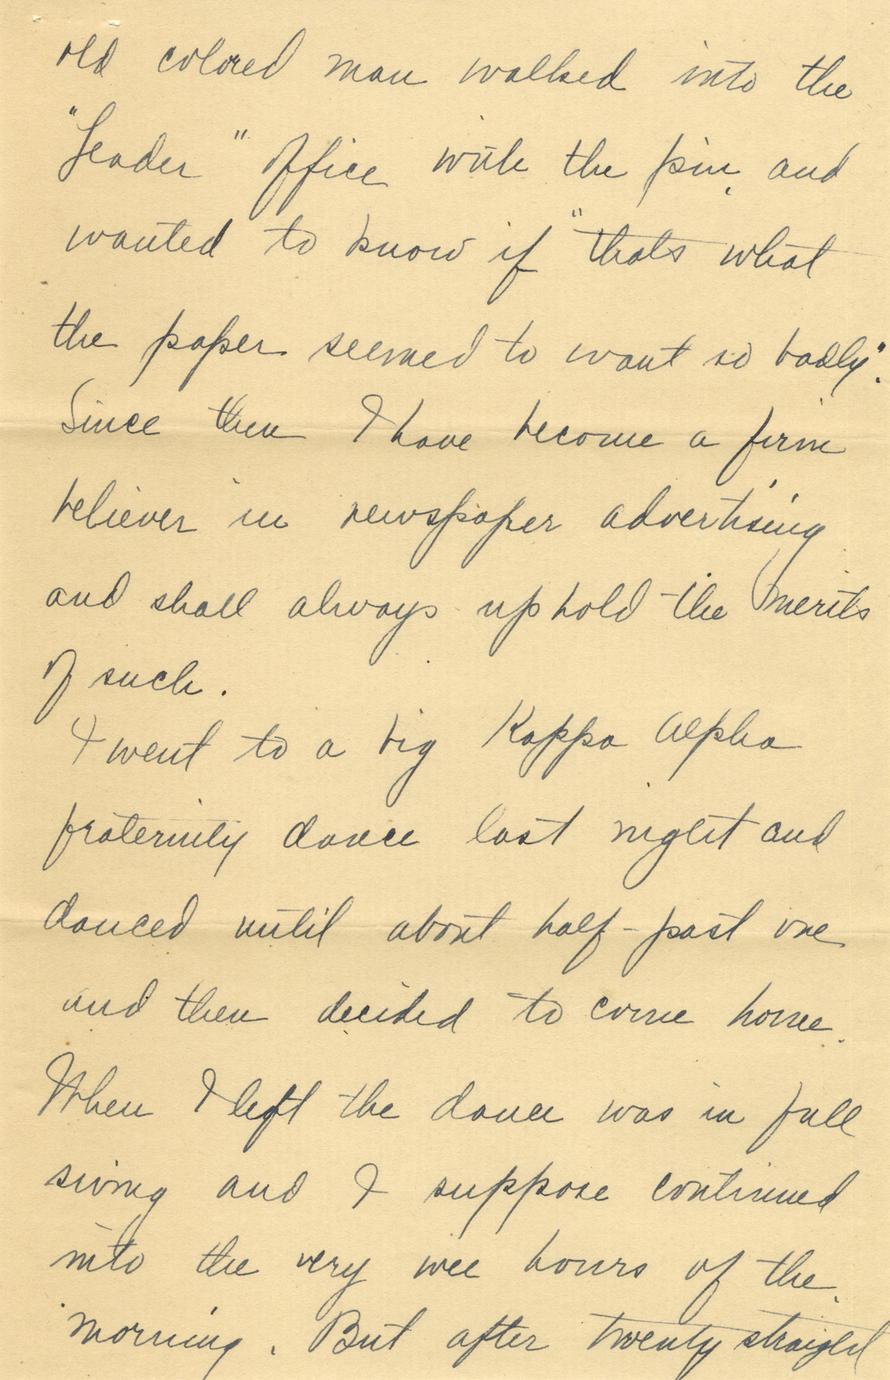 old colored man walked into the
"Leader" office with the pin, and
wanted to know if "thats what
the paper seemed to want so badly".
Since then I have become a firm
believer in newspaper advertising
and shall always uphold the merits
of such.
I went to a big Kappa Alpha
fraternity dance last night and
danced until about half-past one
and then decided to come home.
When I left the dance was in full
swing and I suppose continued
into the very wee hours of the
morning. But after twenty straight